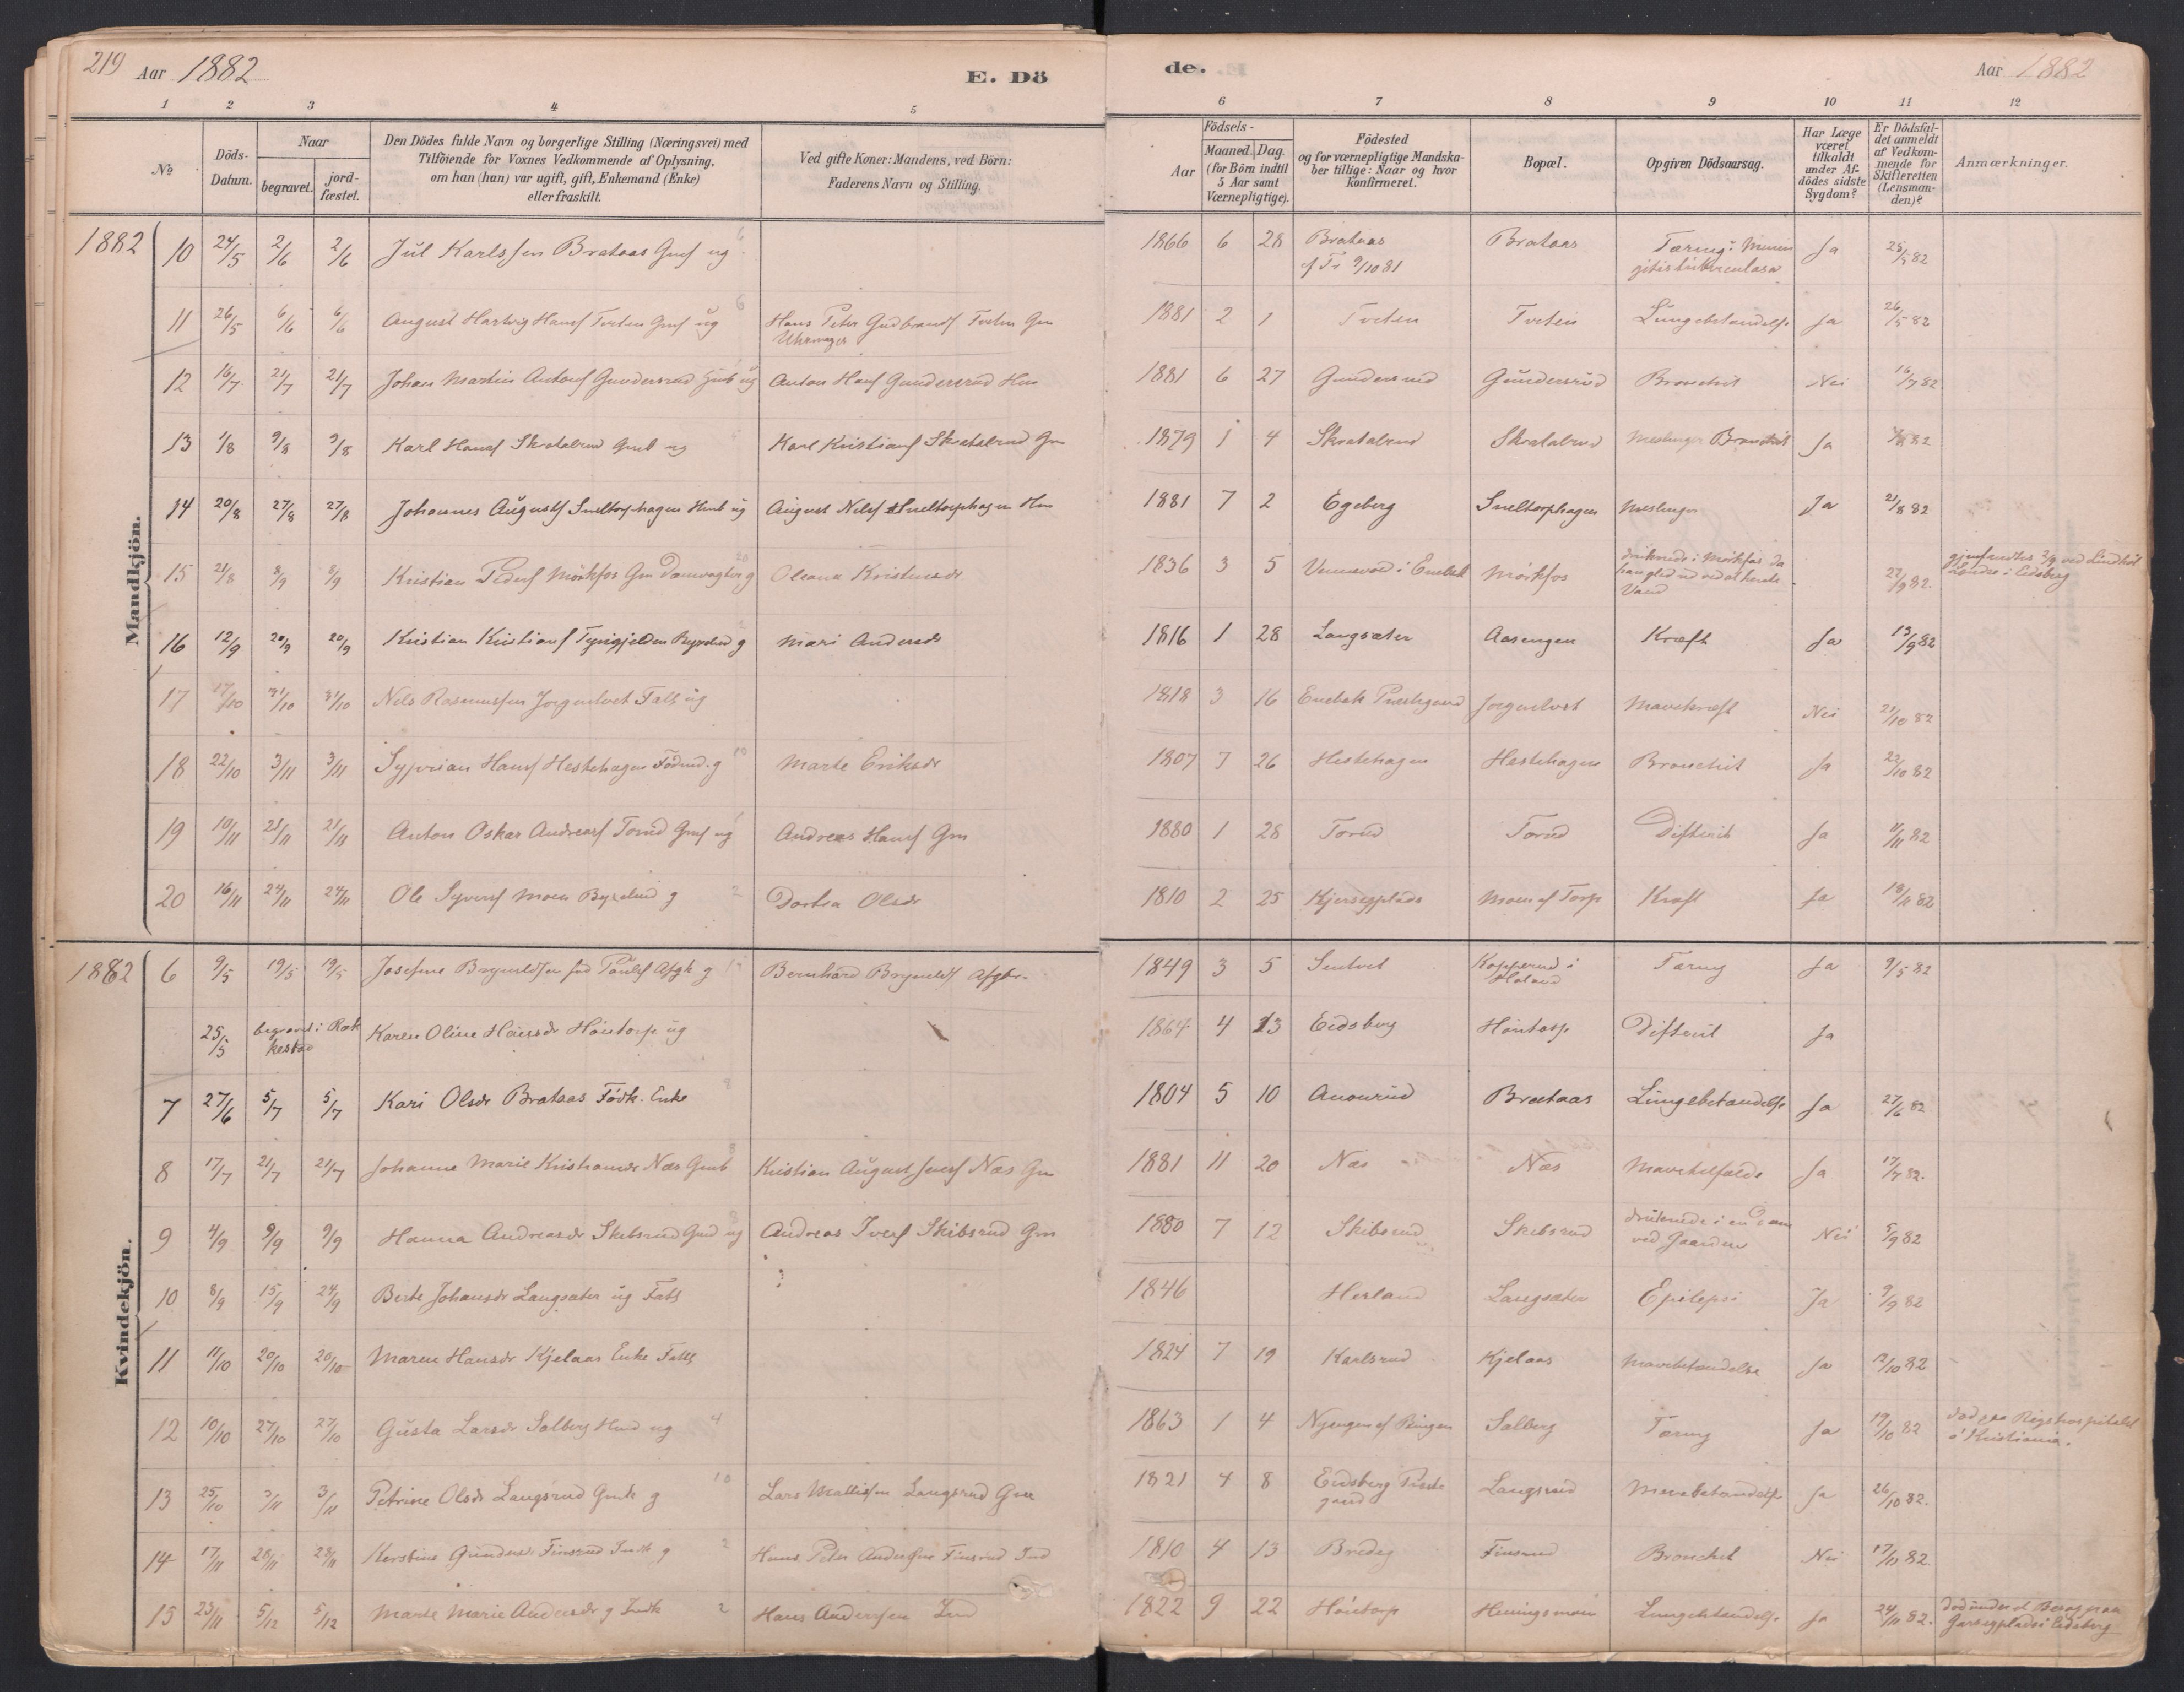 219 Aar 1882 E. Dö
1 2 3 4 5
No
Döds-Datum.
Naar
begravet. jord-fæstet.
Den Dödes fulde Navn og borgerlige Stilling (Næringsvei) med
Tilföiende for Voxnes Vedkommende af Oplysning,
om han (hun) var ugift, gift, Enkemand (Enke)
eller fraskilt.
Ved gifte Koner: Mandens, ved Börn:
Faderens Navn og Stilling.
Mandkjön.
1882 10 24/5 2/6 2/6 Jul Karlssen Brataas Gmf ug
11 26/5 6/6 6/6 August Hartvig Hansf Tveten Gmf ug Hans Peter Gudbrandf Tveten Gm
Uhrmager
12 16/7 21/7 21/7 Johan Martin Antonf Gundersrud ug Anton Hansf Gundersrud Hm
13 1/8 9/8 9/8 Karl Hansf Skratalrud Gmb ug Karl Kristianf Skratalrud Gm
14 20/8 27/8 27/8 Johannes Augustf Sneltorphagen Hmb ug August Nilsf Sneltorphagen Hm
15 21/8 8/9 8/9 Kristian Pedersf Mörkfos Gm Damvogter g Oleana Kristensdr
16 12/9 20/9 20/9 Kristian Kristianf Tyrigjelden g Mari Andersdr
17 17/10 31/10 31/10 Nils Rasmussen Jorgentvet Fatt ug
18 22/10 3/11 3/11 Syverian Hansf Hestehagen Födrd. g Marte Eriksdr
19 10/11 21/11 21/11 Anton Oskar Andreasf Torud Gmf ug Andreas Hansf Gm
20 16/11 24/11 24/11 Ole Syversf Moen g 2 Dortea Olsdr
Kvindekjön.
1882 6 9/5 19/5 19/5 Josefine Bryneldsen föd Paulsf Afgk g Bernhard Bryneldsf Afgbr.
25/5 begravet i Rak
kestad Karen Oline Hansdr Höntorp ug
7 27/6 5/7 5/7 Kari Olsdr Brataas Födk. Enke
8 17/7 21/7 21/7 Johanne Marie Kristiansdr Næs Gmb Kristian August Jensf Næs Gm
9 4/9 9/9 9/9 Hanna Andreasdr Skibsrud ug Andreas Iversf Skibsrud Gm
10 8/9 15/9 24/9 Berte Johansdr Langsæter ug Fatt
11 11/10 20/10 20/10 Maren Hansdr Kjelaas Enke Fatt
12 10/10 27/10 27/10 Gusta Larsdr Solberg ug 4
13 25/10 3/11 3/11 Petrine Olsdr Langsrud Gmk g 10 Lars Mattissen Langsrud Gm
14 17/11 28/11 28/11 Kerstine Gundersdr Finsrud Indk g 2 Hans Peter Anderssen Finsrud Ind
15 23/11 5/12 5/12 Marte Marie Andersdr g Indk 2 Hans Anderssen Ind
de. Aar 1882
6 7 8 9 10 11 12
Födsels-
Aar Maaned. Dag.
(for Börn indtil
5 Aar samt
Værnepligtige).
Födested
og for værnepligtige Mandska-
ber tillige: Naar og hvor
konfirmeret.
Bopæl.
Opgiven Dödsaarsag.
Har Læge
været
tilkaldt
under Af-
dödes sidste
Sygdom?
Er Dödsfal-
det anmeldt
af Vedkom-
mende for
Skifteretten
(Lensman-
den)?
Anmærkninger.
1866 6 28 Brataas Brataas Tæring: Menin Ja 25/5 82
9/10 81 gitis tuberculosa
1881 2 1 Tveten Tveten Lungebetændelse Ja 26/5 82
1881 6 27 Gundersrud Gundersrud Bronchit Nei 16/7 82
1879 1 4 Skratalrud Skratalrud Meslinger Bronchit Ja 82
1881 7 2 Egeberg Sneltorphagen Meslinger Ja 21/8 82
1836 3 5 i Enebak Mörkfos druknede i Mörkfos da
han gled ud ved at hente
Vand 22/9 82. gjenfandtes 2/9 ved
i Eidsberg
1816 1 28 Langsæter Aasengen Kræft Ja 13/9 82
1818 3 16 Enebak Præstegaard Jorgentvet Mavekræft Nei 21/10 82
1807 7 26 Hestehagen Hestehagen Bronchit Ja 22/10 82
1880 1 28 Torud Torud Difterit Ja 11/11 82
1810 2 25 Kjerseplads Moen af Torp Kræft Ja 18/11 82
1849 3 5 Sentvet Kopperud i
Höland Tæring Ja 9/5 82
1864 4 13 Eidsberg Höntorp Difterit Ja
1804 5 10 Anonrud Brataas Lungebetændelse Ja 27/6 82
1881 11 20 Næs Næs Mavetilfælde Ja 17/7 82.
1880 7 12 Skibsrud Skibsrud druknede i en Dam
ved Gaarden Nei 5/9 82
1846 Herland Langsæter Epilepsi Ja 9/9 82
1824 7 19 Karlsrud Kjelaas Mavebetændelse Ja 12/10 82
1863 1 4 Nyengen af Ringen Solberg Tæring Ja 19/10 82 död paa Rigshospitalet
i Kristiania.
1821 4 8 Eidsberg Præste
gaard Langsrud Mavebetændelse Ja 26/10 82.
1810 4 13 Bredeg Finsrud Bronchit Nei 17/11 82.
1822 9 22 Höntorp Heningsmoen Lungebetændelse Ja 24/11 82. död under et Besög paa
i Eidsberg